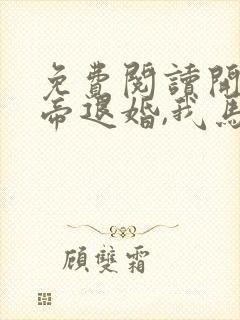 免費閱讀開
帝退婚,我馬
顧雙霜